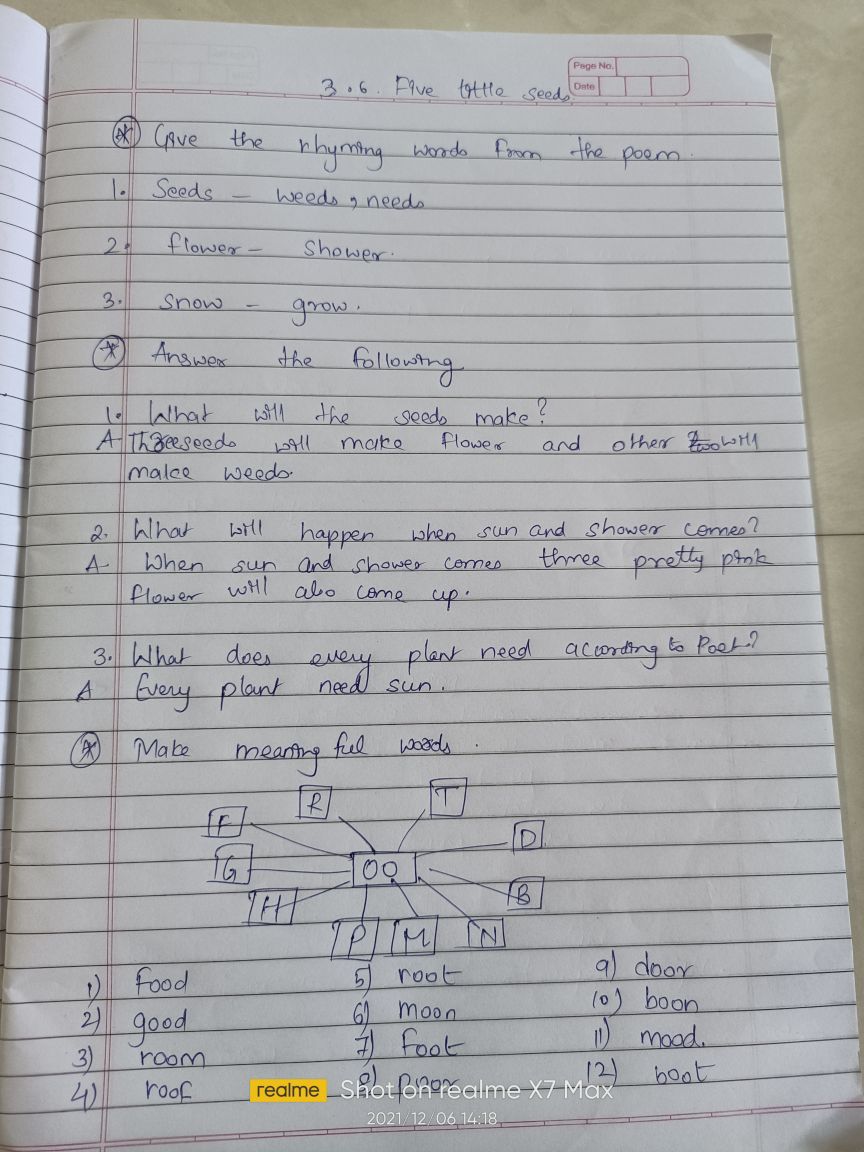 Page No.
3.6. Five little seeds
Date
Give the rhyming words from the poem.
1. Seeds - weeds, needs
2. flower - shower.
3. snow - grow.
Answer the following
1. What will the seeds make?
A Three seeds will make flower and other two will
make weeds.
2. What will happen when sun and shower comes?
A When sun and shower comes three pretty pink
flower will also come up.
3. What does every plant need according to Poet?
A Every plant need sun.
Make meaningful words.
R T
F D
G OO
H B
P M N
1) food 5) root 9) door
2) good 6) moon 10) boon
3) room 7) foot 11) mood.
4) roof 8) poor 12) boot
realme Shot on realme X7 Max
2021/12/06 14:18